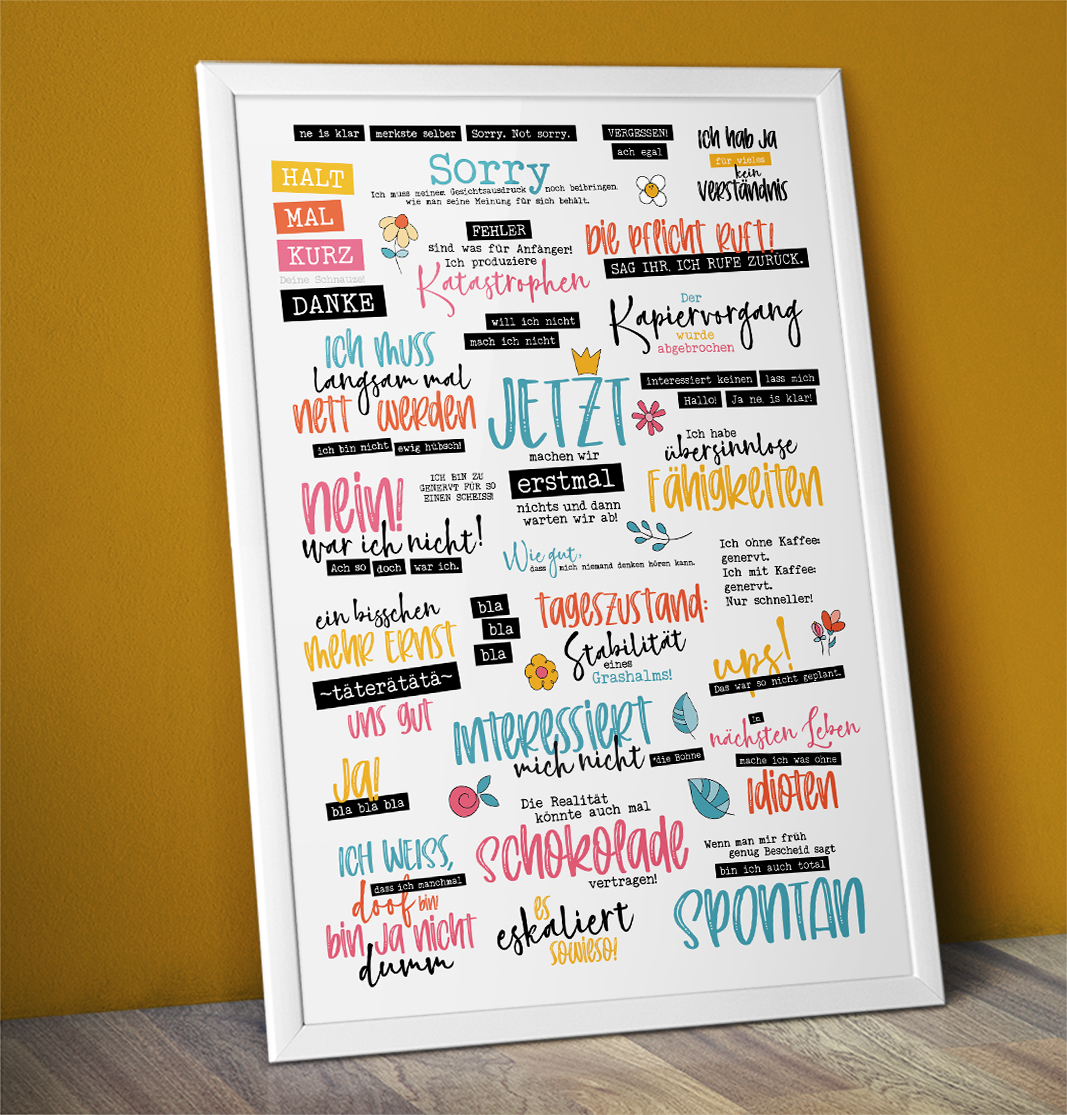 ne is klar
merkste selber
Sorry. Not sorry.
VERGESSEN!
ach egal
ich hab ja
für vieles
kein
verständnis
HALT
MAL
KURZ
Deine Schnauze!
DANKE
Sorry
Ich muss meinem Gesichtsausdruck noch beibringen
wie man seine Meinung für sich behält.
FEHLER
sind was für Anfänger!
Ich produziere
Katastrophen
Die Pflicht ruft!
SAG IHR, ICH RUFE ZURÜCK.
will ich nicht
mach ich nicht
Der
Kapiervorgang
wurde
abgebrochen
ich muss
langsam mal
nett werden
ich bin nicht
ewig hübsch!
JETZT
machen wir
erstmal
nichts und dann
warten wir ab!
interessiert keinen
lass mich
Hallo!
Ja ne, is klar!
Ich habe
übersinnlose
Fähigkeiten
nein!
war ich nicht!
Ach so
doch
war ich.
ICH BIN ZU
GENERVT FÜR SO
EINEN SCHEISS!
Wie gut,
dass mich niemand denken hören kann.
Ich ohne Kaffee:
genervt.
Ich mit Kaffee:
genervt.
Nur schneller!
ein bisschen
mehr Ernst
~täterätätä~
uns gut
bla
bla
bla
tageszustand:
Stabilität
eines
Grashalms!
ups!
Das war so nicht geplant.
interessiert
mich nicht
*die Bohne
im
nächsten Leben
mache ich was ohne
Idioten
Ja!
bla bla bla
Die Realität
könnte auch mal
Schokolade
vertragen!
Wenn man mir früh
genug Bescheid sagt
bin ich auch total
SPONTAN
ICH WEISS,
dass ich manchmal
doof bin!
bin ja nicht
dumm
es
eskaliert
sowieso!